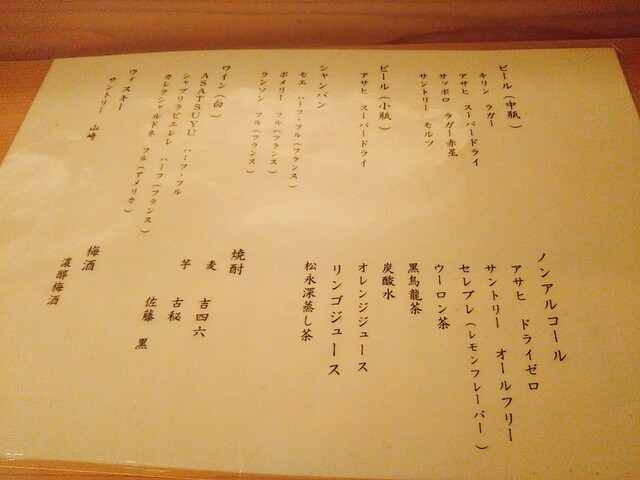 ビール（中瓶）
キリン ラガー
アサヒ スーパードライ
サッポロ ラガー赤星
サントリー モルツ
ビール（小瓶）
アサヒ スーパードライ
シャンパン
モエ ハーフ・フル（フランス）
ポメリー フル（フランス）
ランソン フル（フランス）
ワイン（白）
ASATSUYU ハーフ・フル
シャブリラピエレレ ハーフ（フランス）
カレラシャルドネ フル（アメリカ）
ウィスキー
サントリー 山崎
ノンアルコール
アサヒ ドライゼロ
サントリー オールフリー
セレブレ（レモンフレーバー）
ウーロン茶
黒烏龍茶
炭酸水
オレンジジュース
リンゴジュース
松永深蒸し茶
焼酎
麦 吉四六
芋 古秘
佐藤 黒
梅酒
濃醇梅酒